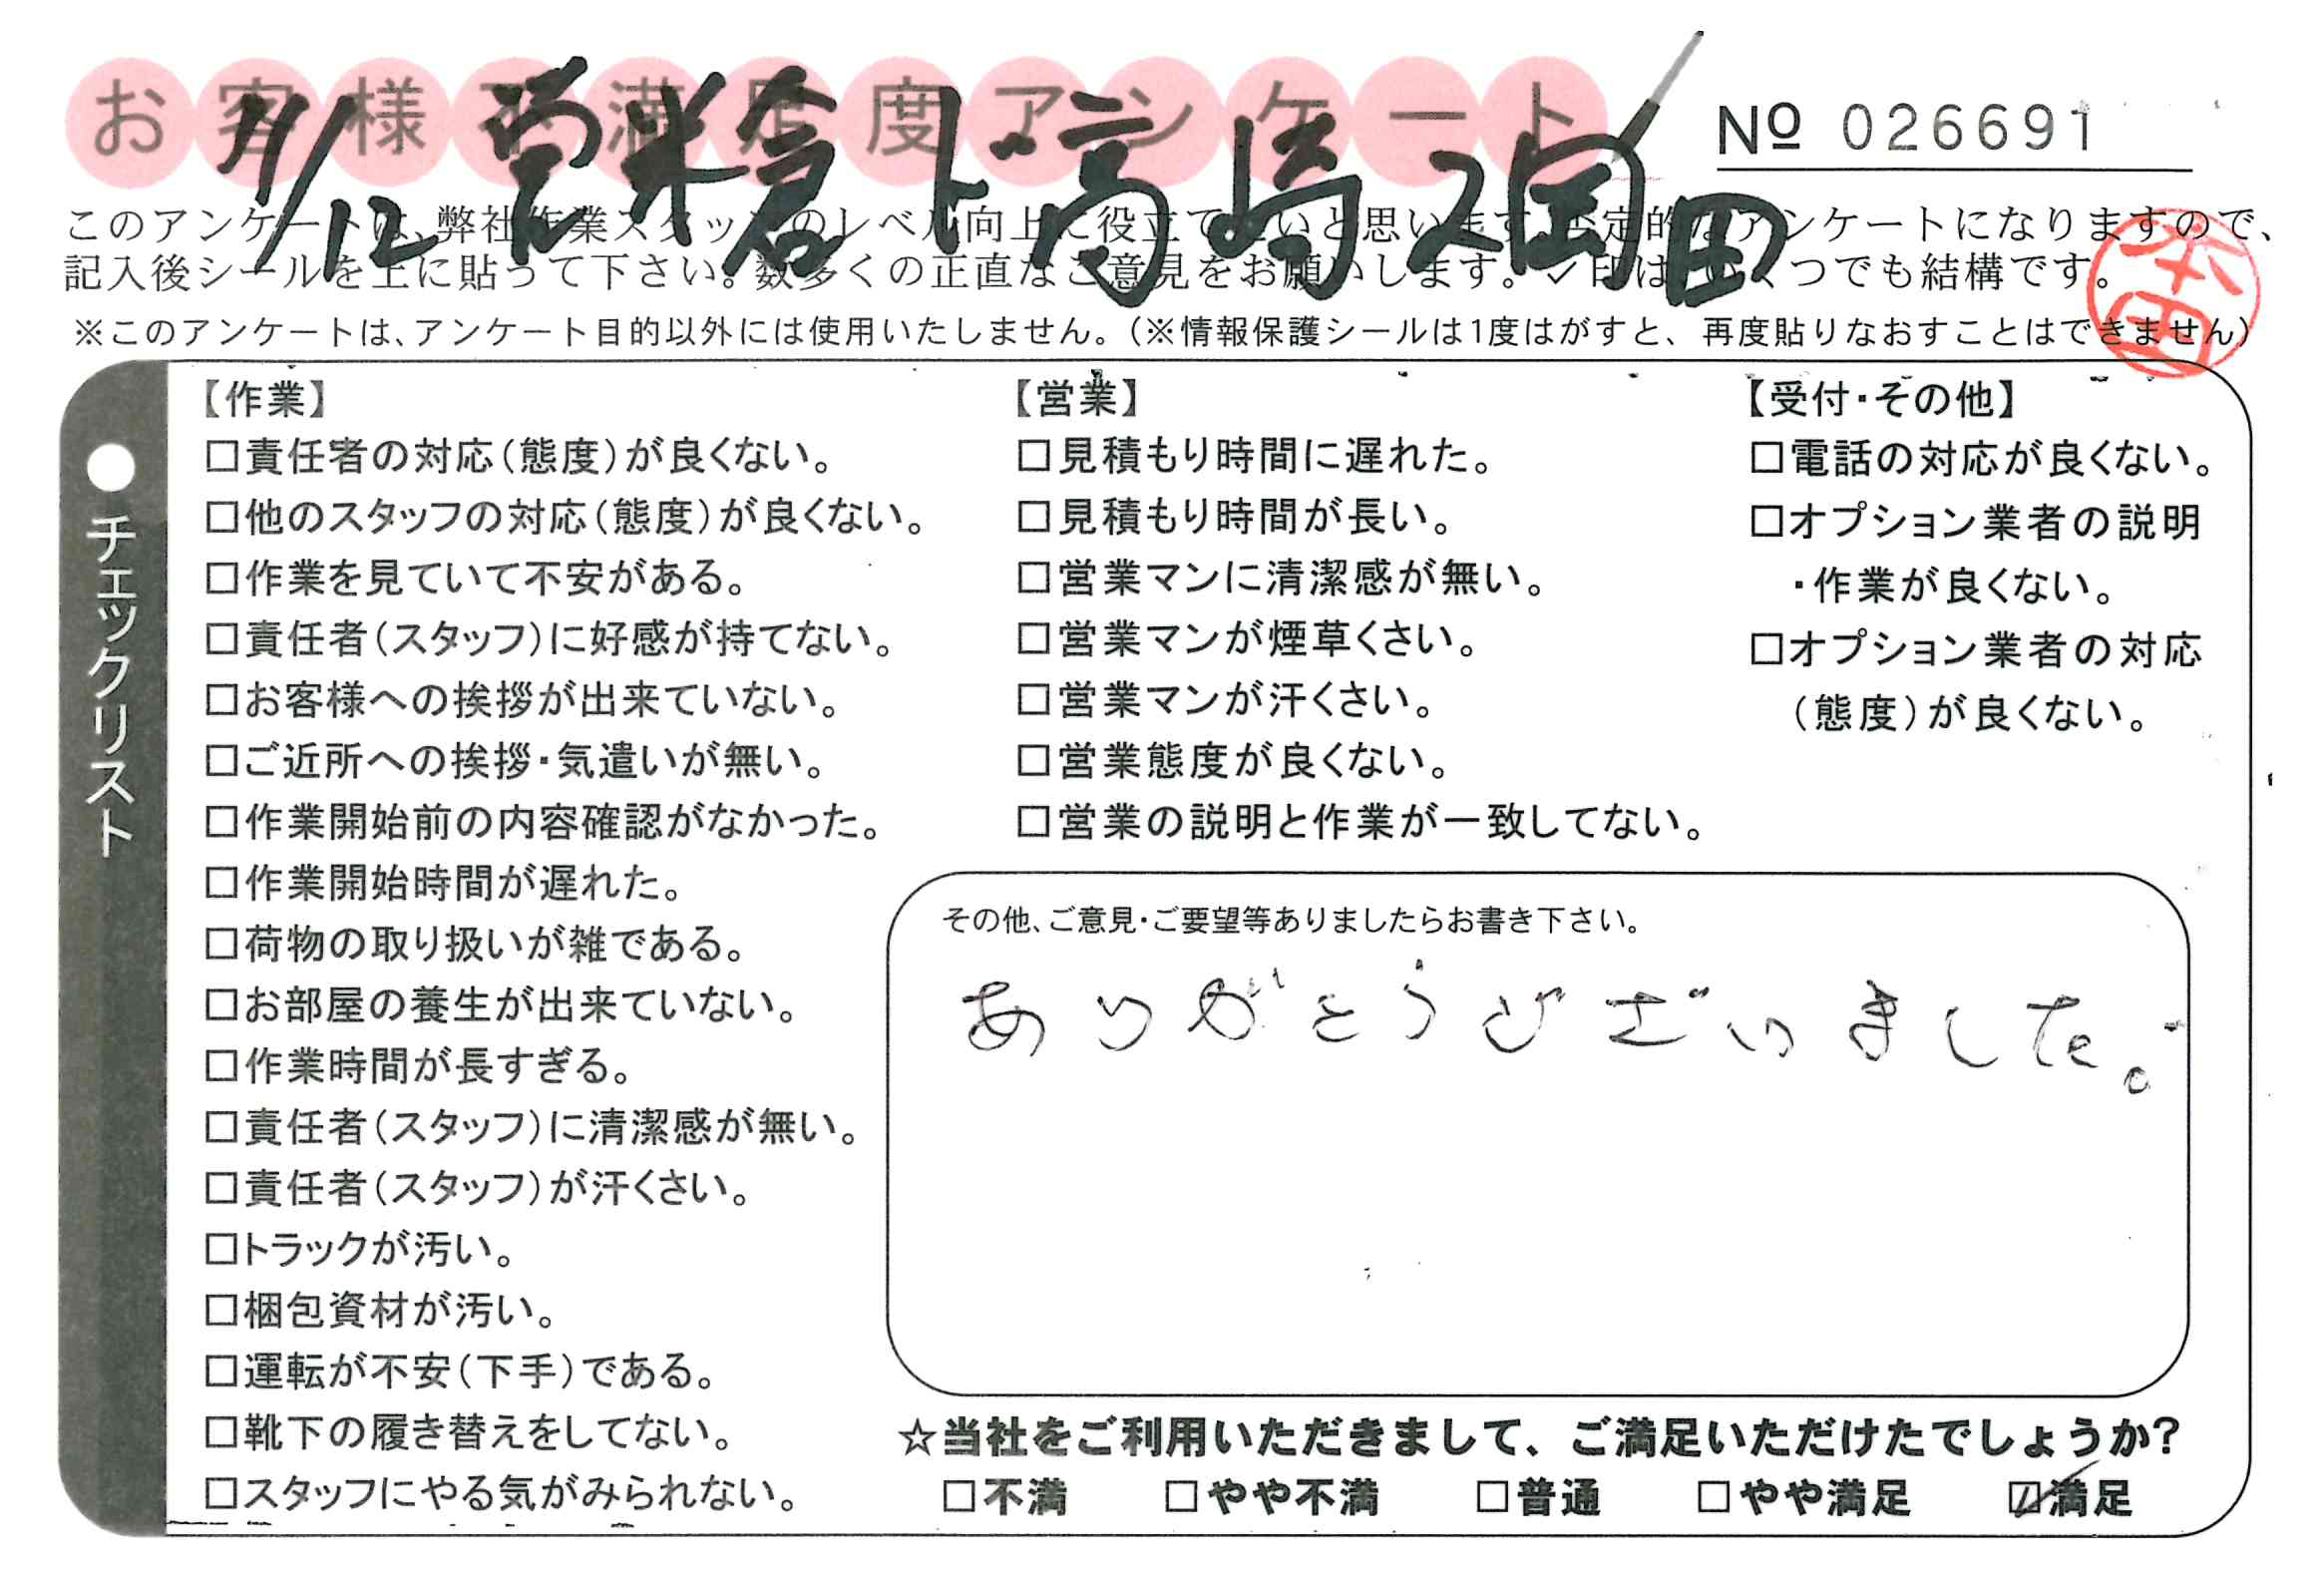 お客様不満足度アンケート
Nº 026691
7/12
高崎
田
このアンケートは、弊社作業スタッフのレベル向上に役立てたいと思います。否定的なアンケートになりますので、
記入後シールを上に貼って下さい。数多くの正直なご意見をお願いします。✓印はいくつでも結構です。
※このアンケートは、アンケート目的以外には使用いたしません。(※情報保護シールは1度はがすと、再度貼りなおすことはできません)
本田
●チェックリスト
【作業】
□責任者の対応(態度)が良くない。
□他のスタッフの対応(態度)が良くない。
□作業を見ていて不安がある。
□責任者(スタッフ)に好感が持てない。
□お客様への挨拶が出来ていない。
□ご近所への挨拶・気遣いが無い。
□作業開始前の内容確認がなかった。
□作業開始時間が遅れた。
□荷物の取り扱いが雑である。
□お部屋の養生が出来ていない。
□作業時間が長すぎる。
□責任者(スタッフ)に清潔感が無い。
□責任者(スタッフ)が汗くさい。
□トラックが汚い。
□梱包資材が汚い。
□運転が不安(下手)である。
□靴下の履き替えをしてない。
□スタッフにやる気がみられない。
【営業】
□見積もり時間に遅れた。
□見積もり時間が長い。
□営業マンに清潔感が無い。
□営業マンが煙草くさい。
□営業マンが汗くさい。
□営業態度が良くない。
□営業の説明と作業が一致してない。
【受付・その他】
□電話の対応が良くない。
□オプション業者の説明
・作業が良くない。
□オプション業者の対応
(態度)が良くない。
その他、ご意見・ご要望等ありましたらお書き下さい。
ありがとうございました。
☆当社をご利用いただきまして、ご満足いただけたでしょうか?
□不満 □やや不満 □普通 □やや満足 ☑満足